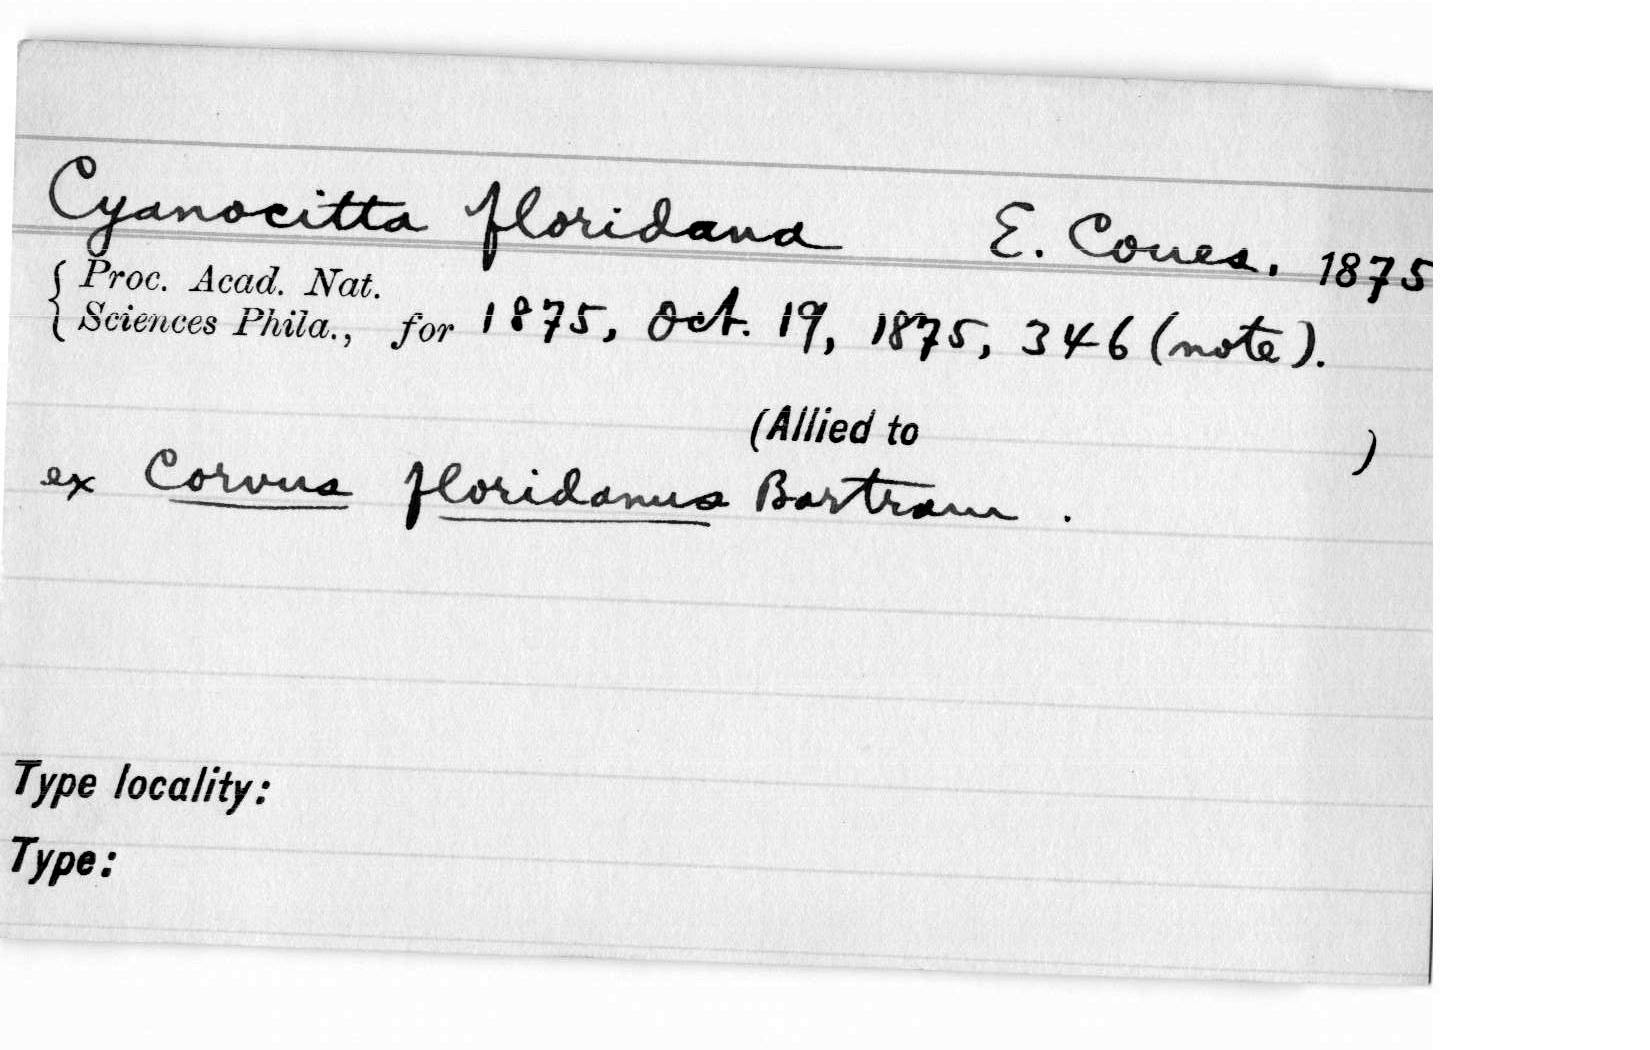 Cyanocitta floridana E. Coues. 1875
Proc. Acad. Nat.
Sciences Phila., for 1875, Oct. 19, 1875, 346 (note).
(Allied to )
ex Corvus floridanus Bartram.
Type locality:
Type: